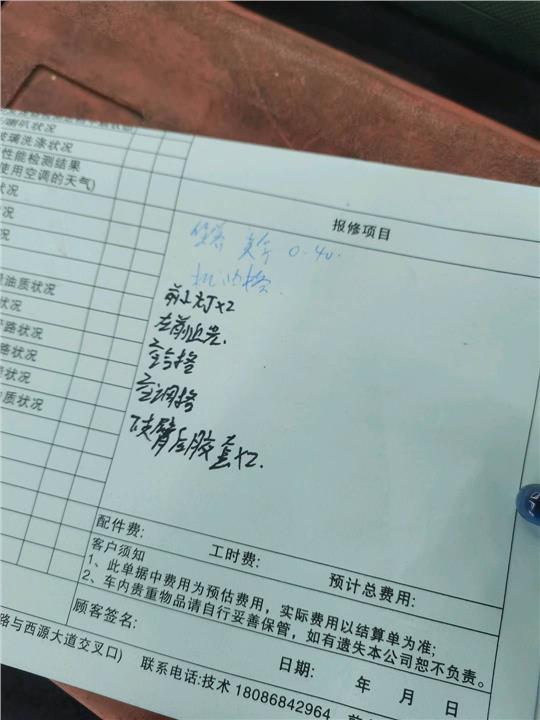 喇叭状况
玻璃洗涤状况
性能检测结果
使用空调的天气)
状况
况
况
油质状况
状况
路状况
路状况
状况
质状况
报修项目
保养 0-40
机油格
前大灯x2
空气格
空调格
下支臂后胶套x2.
配件费:
工时费:
预计总费用:
客户须知
1、此单据中费用为预估费用，实际费用以结算单为准;
2、车内贵重物品请自行妥善保管，如有遗失本公司恕不负责。
顾客签名:
日期: 年 月 日
路与西源大道交叉口) 联系电话:技术 18086842964